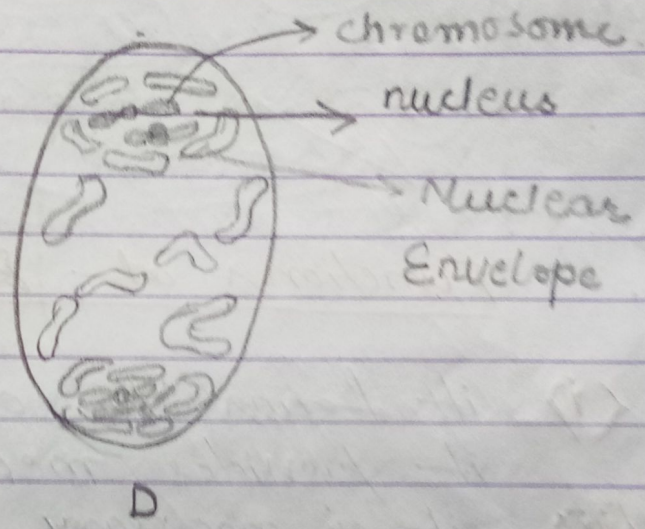 chromosome
nucleus
Nuclear
Envelope
D